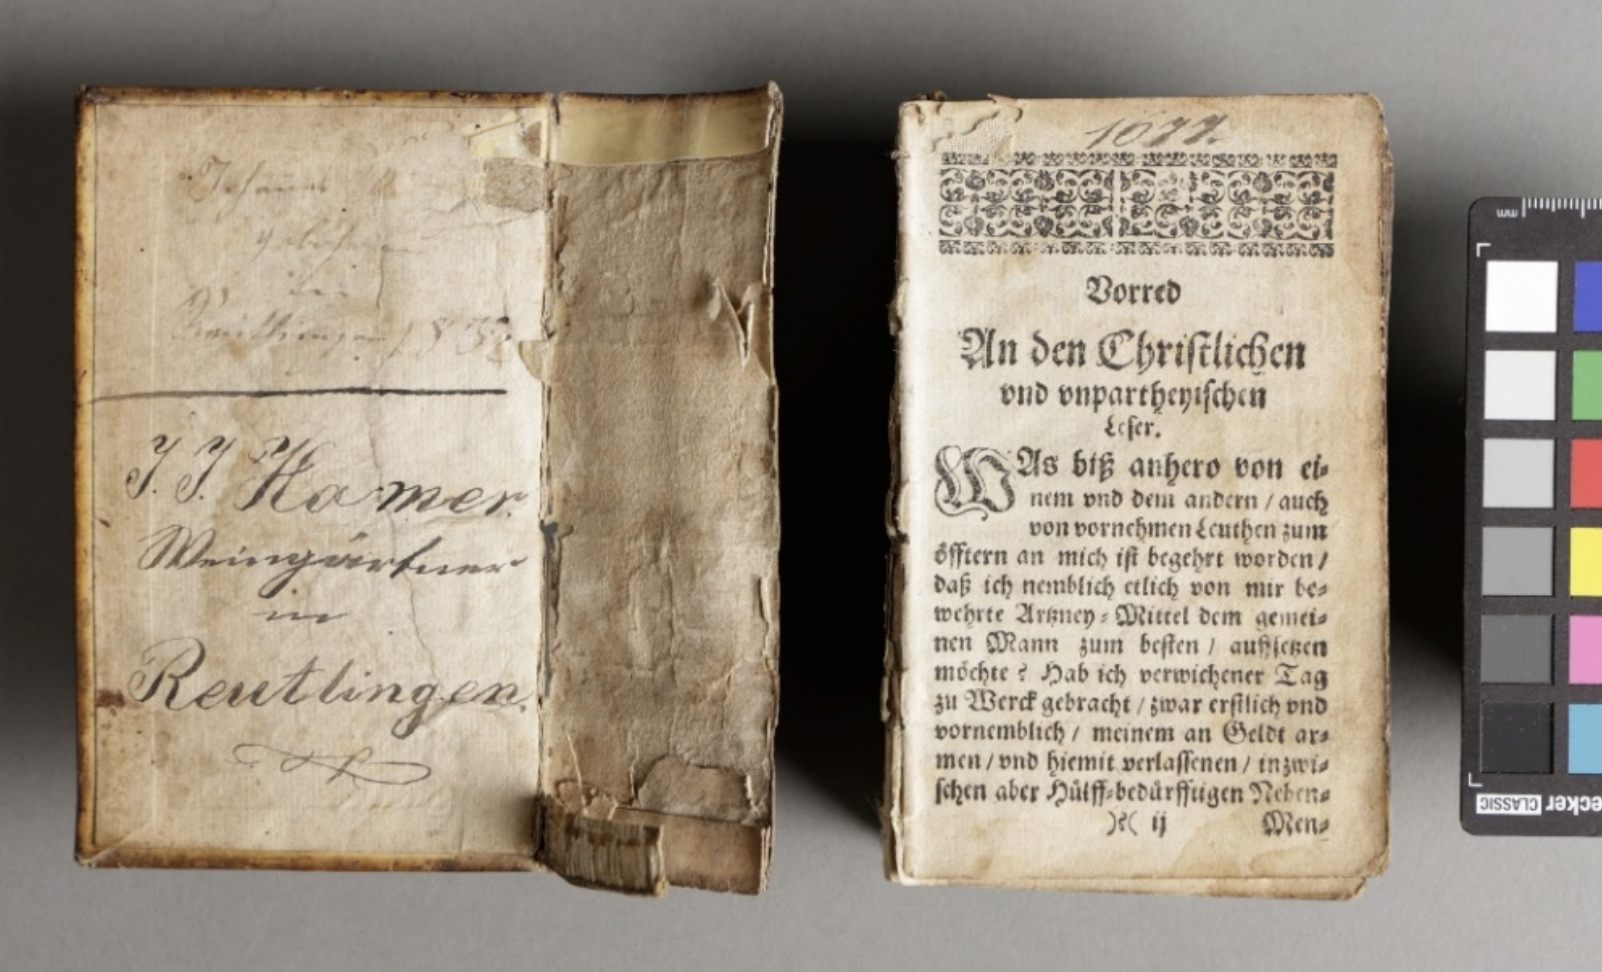 Johannes
in
Reutlingen 1832
J. J. Hamer.
Weingärtner
in
Reutlingen.
1677.
Vorred
An den Christlichen
vnd vnpartheyischen
Leser.
WAs biß anhero von ei-
nem vnd dem andern / auch
von vornehmen Leuthen zum
öfftern an mich ist begehrt worden /
daß ich nemblich etlich von mir be-
wehrte Artzney-Mittel dem gemei-
nen Mann zum besten / auffsetzen
möchte? Hab ich verwichener Tag
zu Werck gebracht / zwar erstlich vnd
vornemblich / meinem an Geldt ar-
men / vnd hiemit verlassenen / inzwi-
schen aber Hülff-bedürfftigen Neben-
)?( ij Men-
mm
CLASSIC ecker